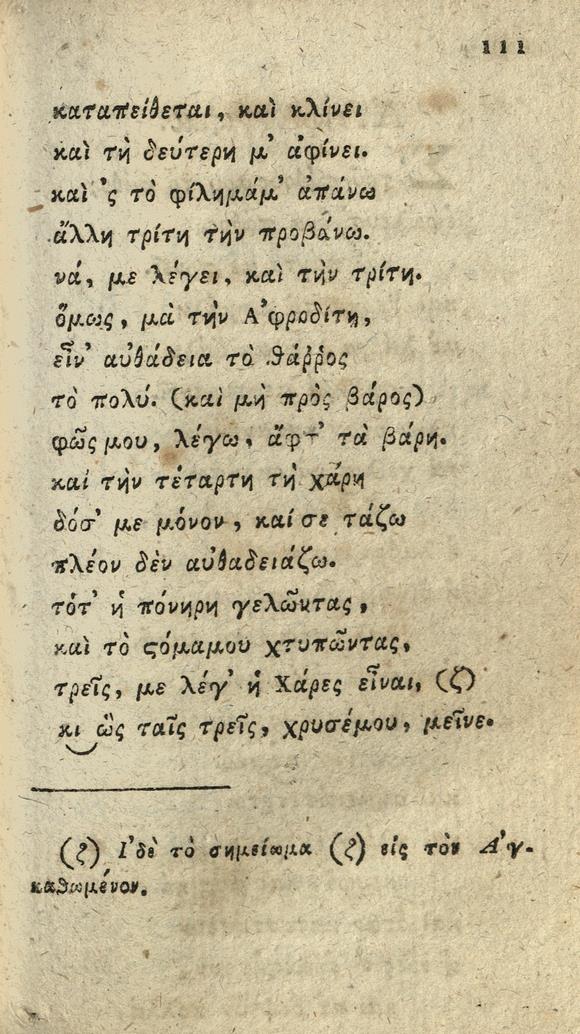 111
καταπείθεται, καὶ κλίνει
καὶ τὴ δεύτερη μ' ἀφίνει.
καὶ 'ς τὸ φίλημάμ' ἀπάνω
ἄλλη τρίτη τὴν προβάνω.
νά, με λέγει, καὶ τὴν τρίτη.
ὅμως, μὰ τὴν Ἀφροδίτη,
εἶν' αὐθάδεια τὸ θάῤῥος
τὸ πολύ. (καὶ μὴ πρὸς βάρος)
φῶς μου, λέγω, ἄφτ' τὰ βάρη.
καὶ τὴν τέταρτη τὴ χάρη
δόσ' με μόνον, καί σε τάζω
πλέον δὲν αὐθαδειάζω.
τότ' ἡ πόνηρη γελῶντας,
καὶ τὸ ϛόμαμου χτυπῶντας,
τρεῖς, με λέγ' ἡ Χάρες εἶναι, (ζ)
κι ὣς ταῖς τρεῖς, χρυσέμου, μεῖνε.
(ζ) Ἰδὲ τὸ σημείωμα (ζ) εἰς τὸν Ἀγ-
καθωμένον.